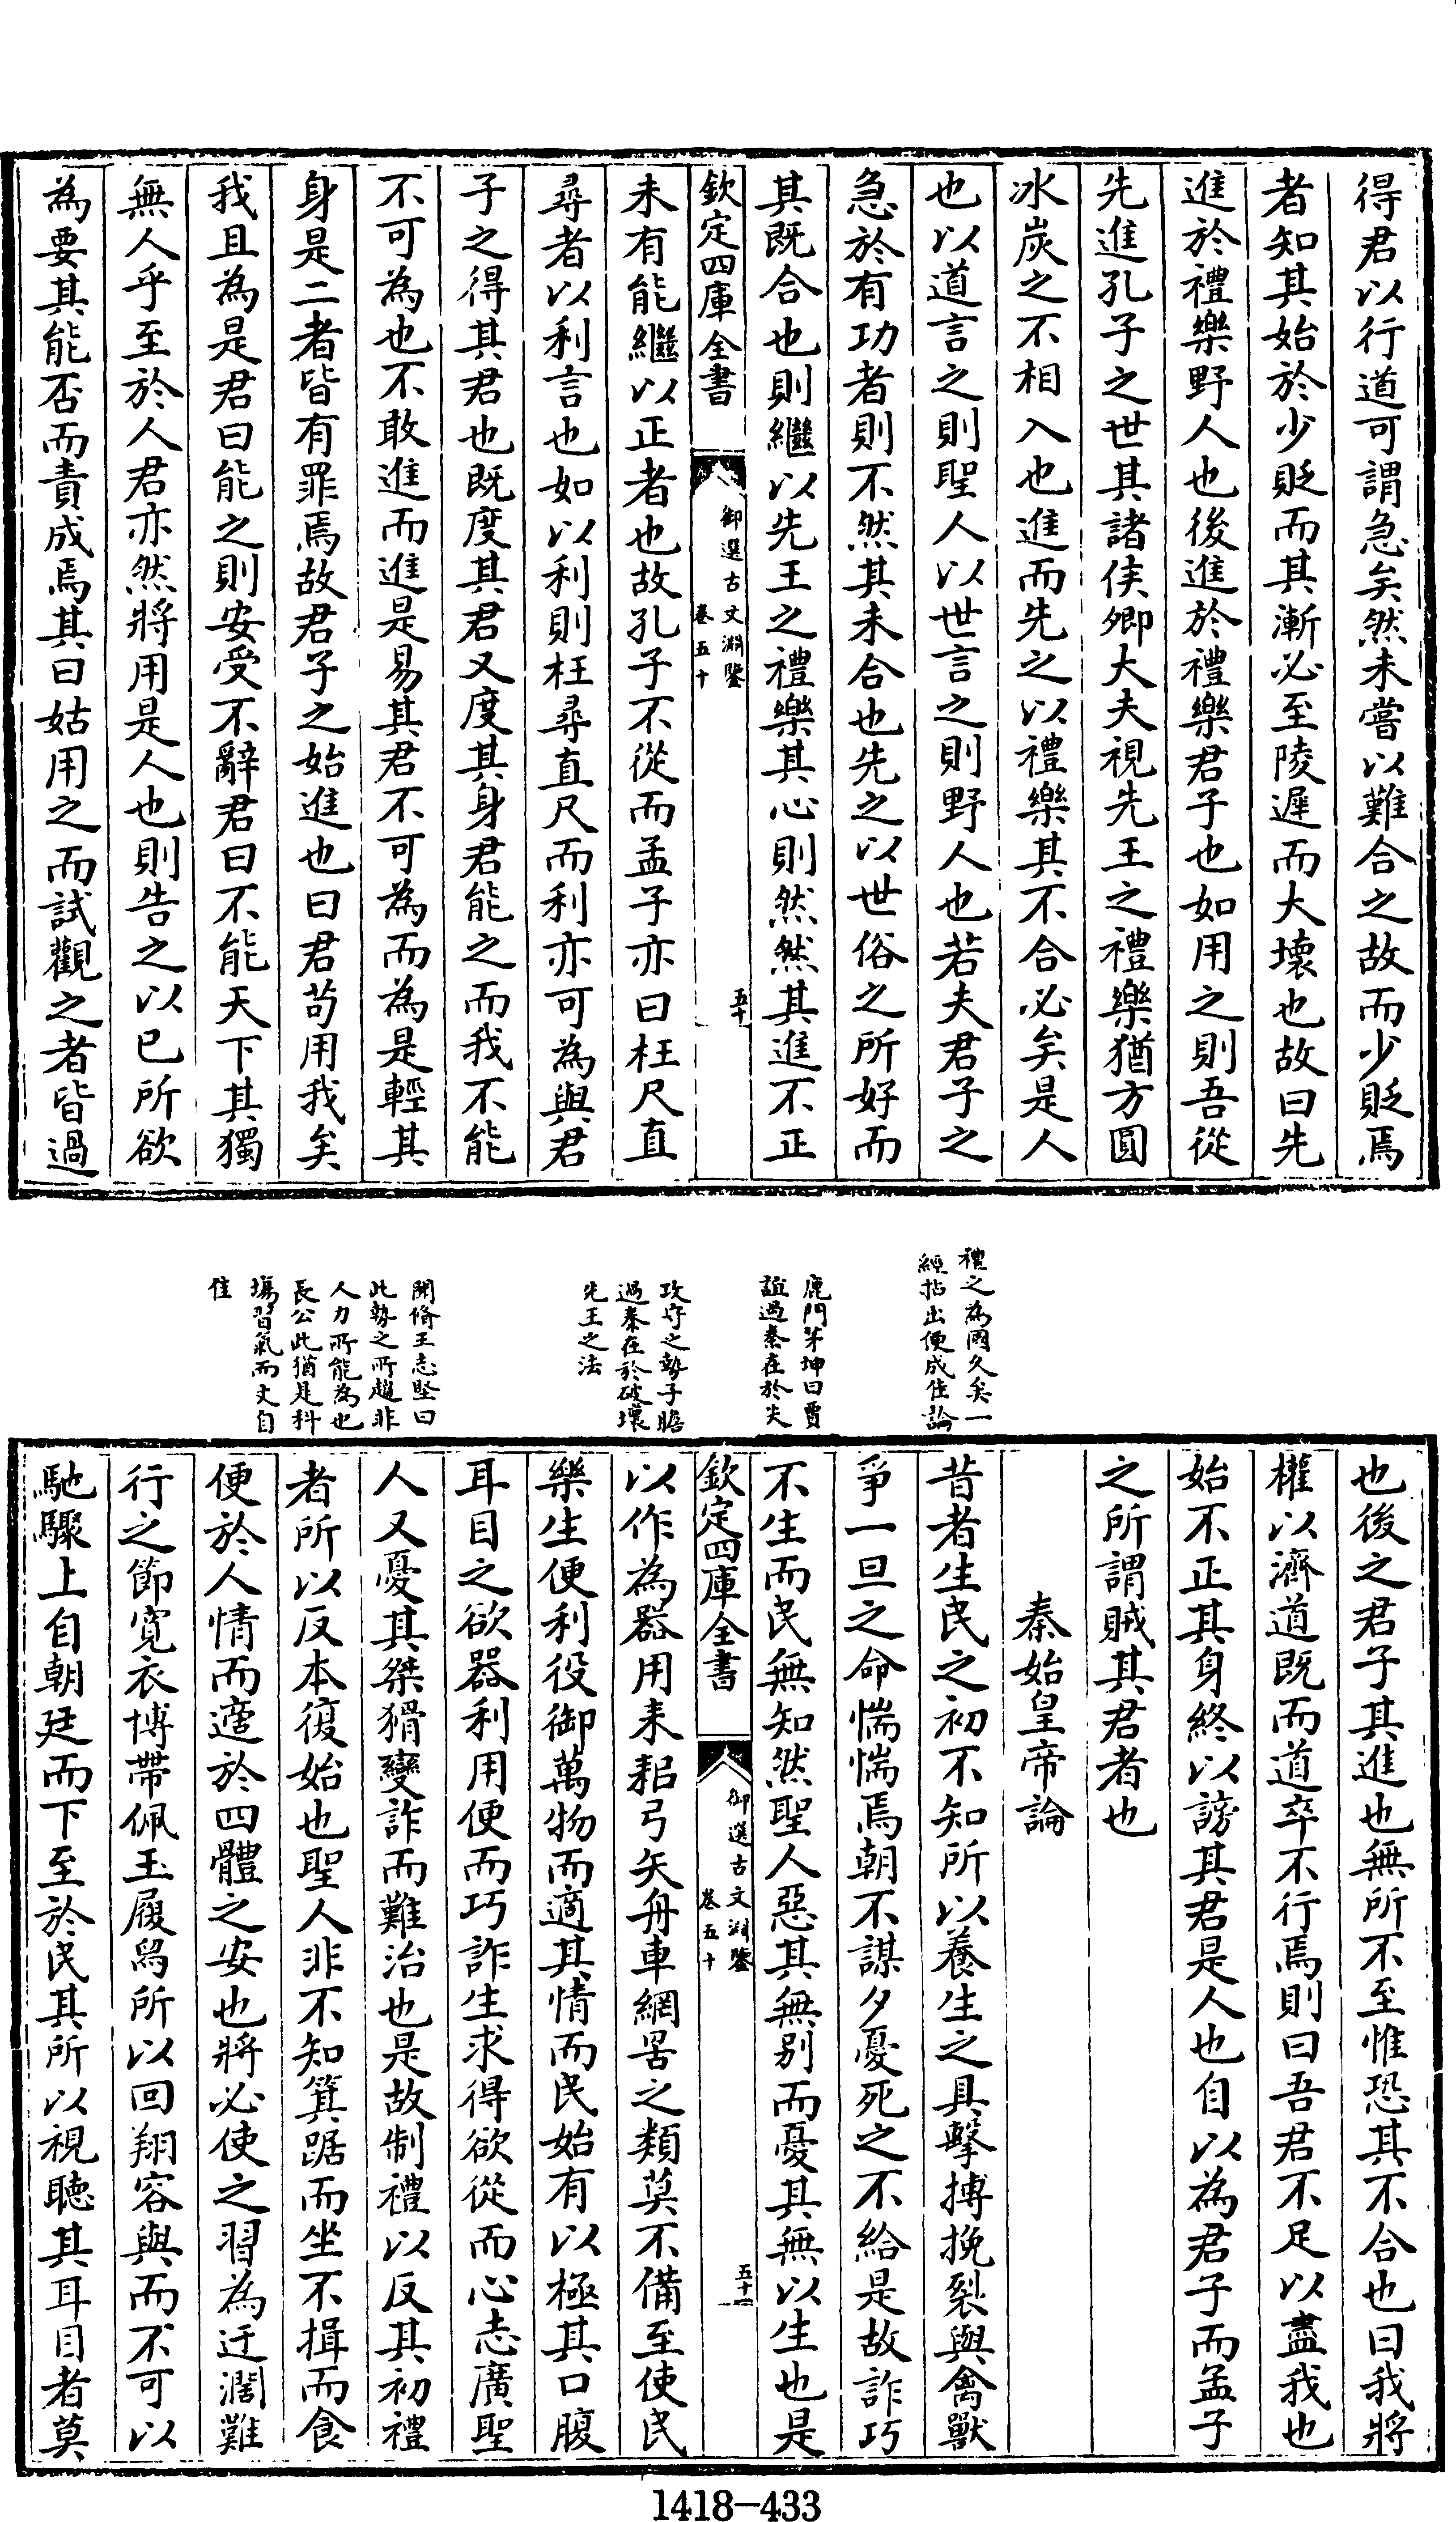 得君以行道可謂急矣然未嘗以難合之故而少貶焉
者知其始於少貶而其漸必至陵遲而大壞也故曰先
進於禮樂野人也後進於禮樂君子也如用之則吾從
先進孔子之世其諸侯卿大夫視先王之禮樂猶方圓
冰炭之不相入也進而先之以禮樂其不合必矣是人
也以道言之則聖人以世言之則野人也若夫君子之
急於有功者則不然其未合也先之以世俗之所好而
其既合也則繼以先王之禮樂其心則然然其進不正
欽定四庫全書
御選古文淵鑒
卷五十
五十
未有能繼以正者也故孔子不從而孟子亦曰枉尺直
尋者以利言也如以利則枉尋直尺而利亦可為與君
子之得其君也既度其君又度其身君能之而我不能
不可為也不敢進而進是易其君不可為而為是輕其
身是二者皆有罪焉故君子之始進也曰君苟用我矣
我且為是君曰能之則安受不辭君曰不能天下其獨
無人乎至於人君亦然將用是人也則告之以已所欲
為要其能否而責成焉其曰姑用之而試觀之者皆過
禮之為國久矣一
經拈出便成佳論
鹿門茅坤曰賈
誼過秦在於失
攻守之勢子瞻
過秦在於破壞
先王之法
開脩王志堅曰
此勢之所趨非
人力所能為也
長公此猶是科
塲習氣而文自
佳
也後之君子其進也無所不至惟恐其不合也曰我將
權以濟道既而道卒不行焉則曰吾君不足以盡我也
始不正其身終以謗其君是人也自以為君子而孟子
之所謂賊其君者也
秦始皇帝論
昔者生民之初不知所以養生之具擊搏挽裂與禽獸
爭一旦之命惴惴焉朝不謀夕憂死之不給是故詐巧
不生而民無知然聖人惡其無別而憂其無以生也是
欽定四庫全書
御選古文淵鑒
卷五十
五十一
以作為器用耒耜弓矢舟車網罟之類莫不備至使民
樂生便利役御萬物而適其情而民始有以極其口腹
耳目之欲器利用便而巧詐生求得欲從而心志廣聖
人又憂其桀猾變詐而難治也是故制禮以反其初禮
者所以反本復始也聖人非不知箕踞而坐不揖而食
便於人情而適於四體之安也將必使之習為迂濶難
行之節寬衣博帶佩玉履舄所以回翔容與而不可以
馳驟上自朝廷而下至於民其所以視聽其耳目者莫
1418—433